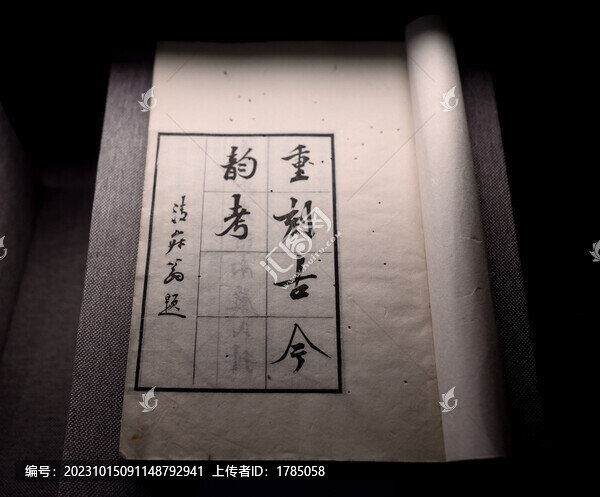 重刻古今
韵考
清寂翁題
汇图网
编号：20231015091148792941 上传者ID：1785058